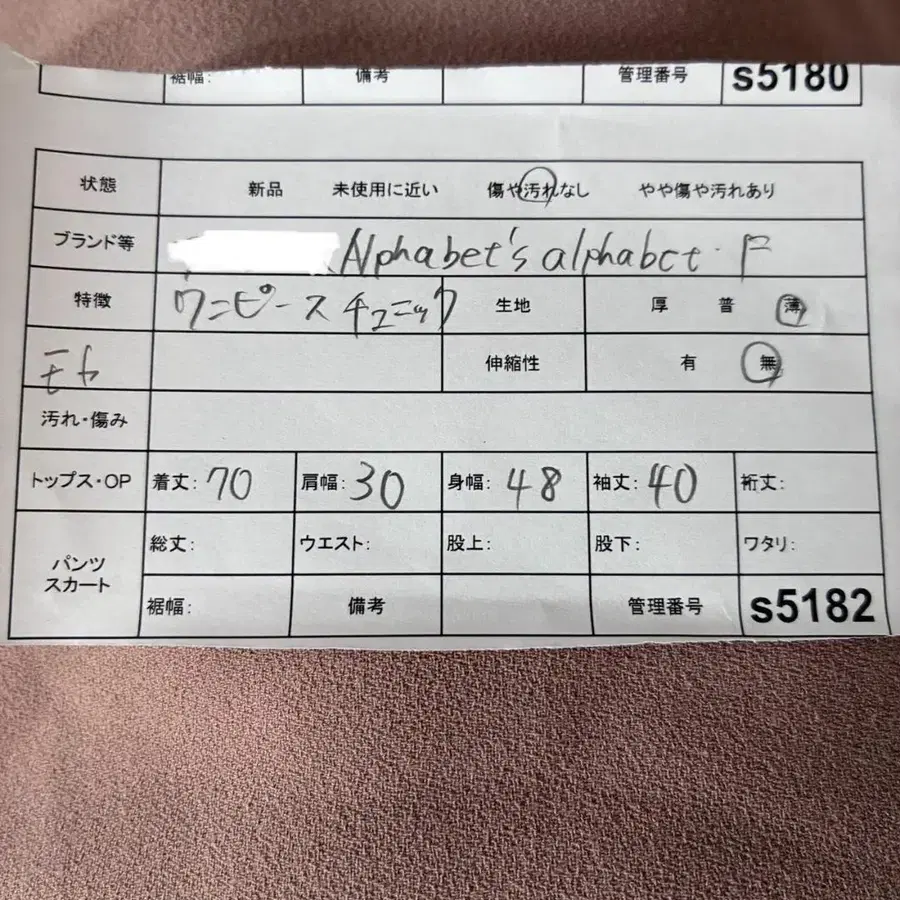 裾幅: 備考 管理番号 s5180
状態 新品 未使用に近い 傷や汚れなし やや傷や汚れあり
ブランド等 Alphabet's alphabet・F
特徴 ワンピースチュニック 生地 厚 普 薄
伸縮性 有 無
汚れ・傷み
トップス・OP 着丈: 70 肩幅: 30 身幅: 48 袖丈: 40 裄丈:
パンツ スカート 総丈: ウエスト: 股上: 股下: ワタリ:
裾幅: 備考 管理番号 s5182